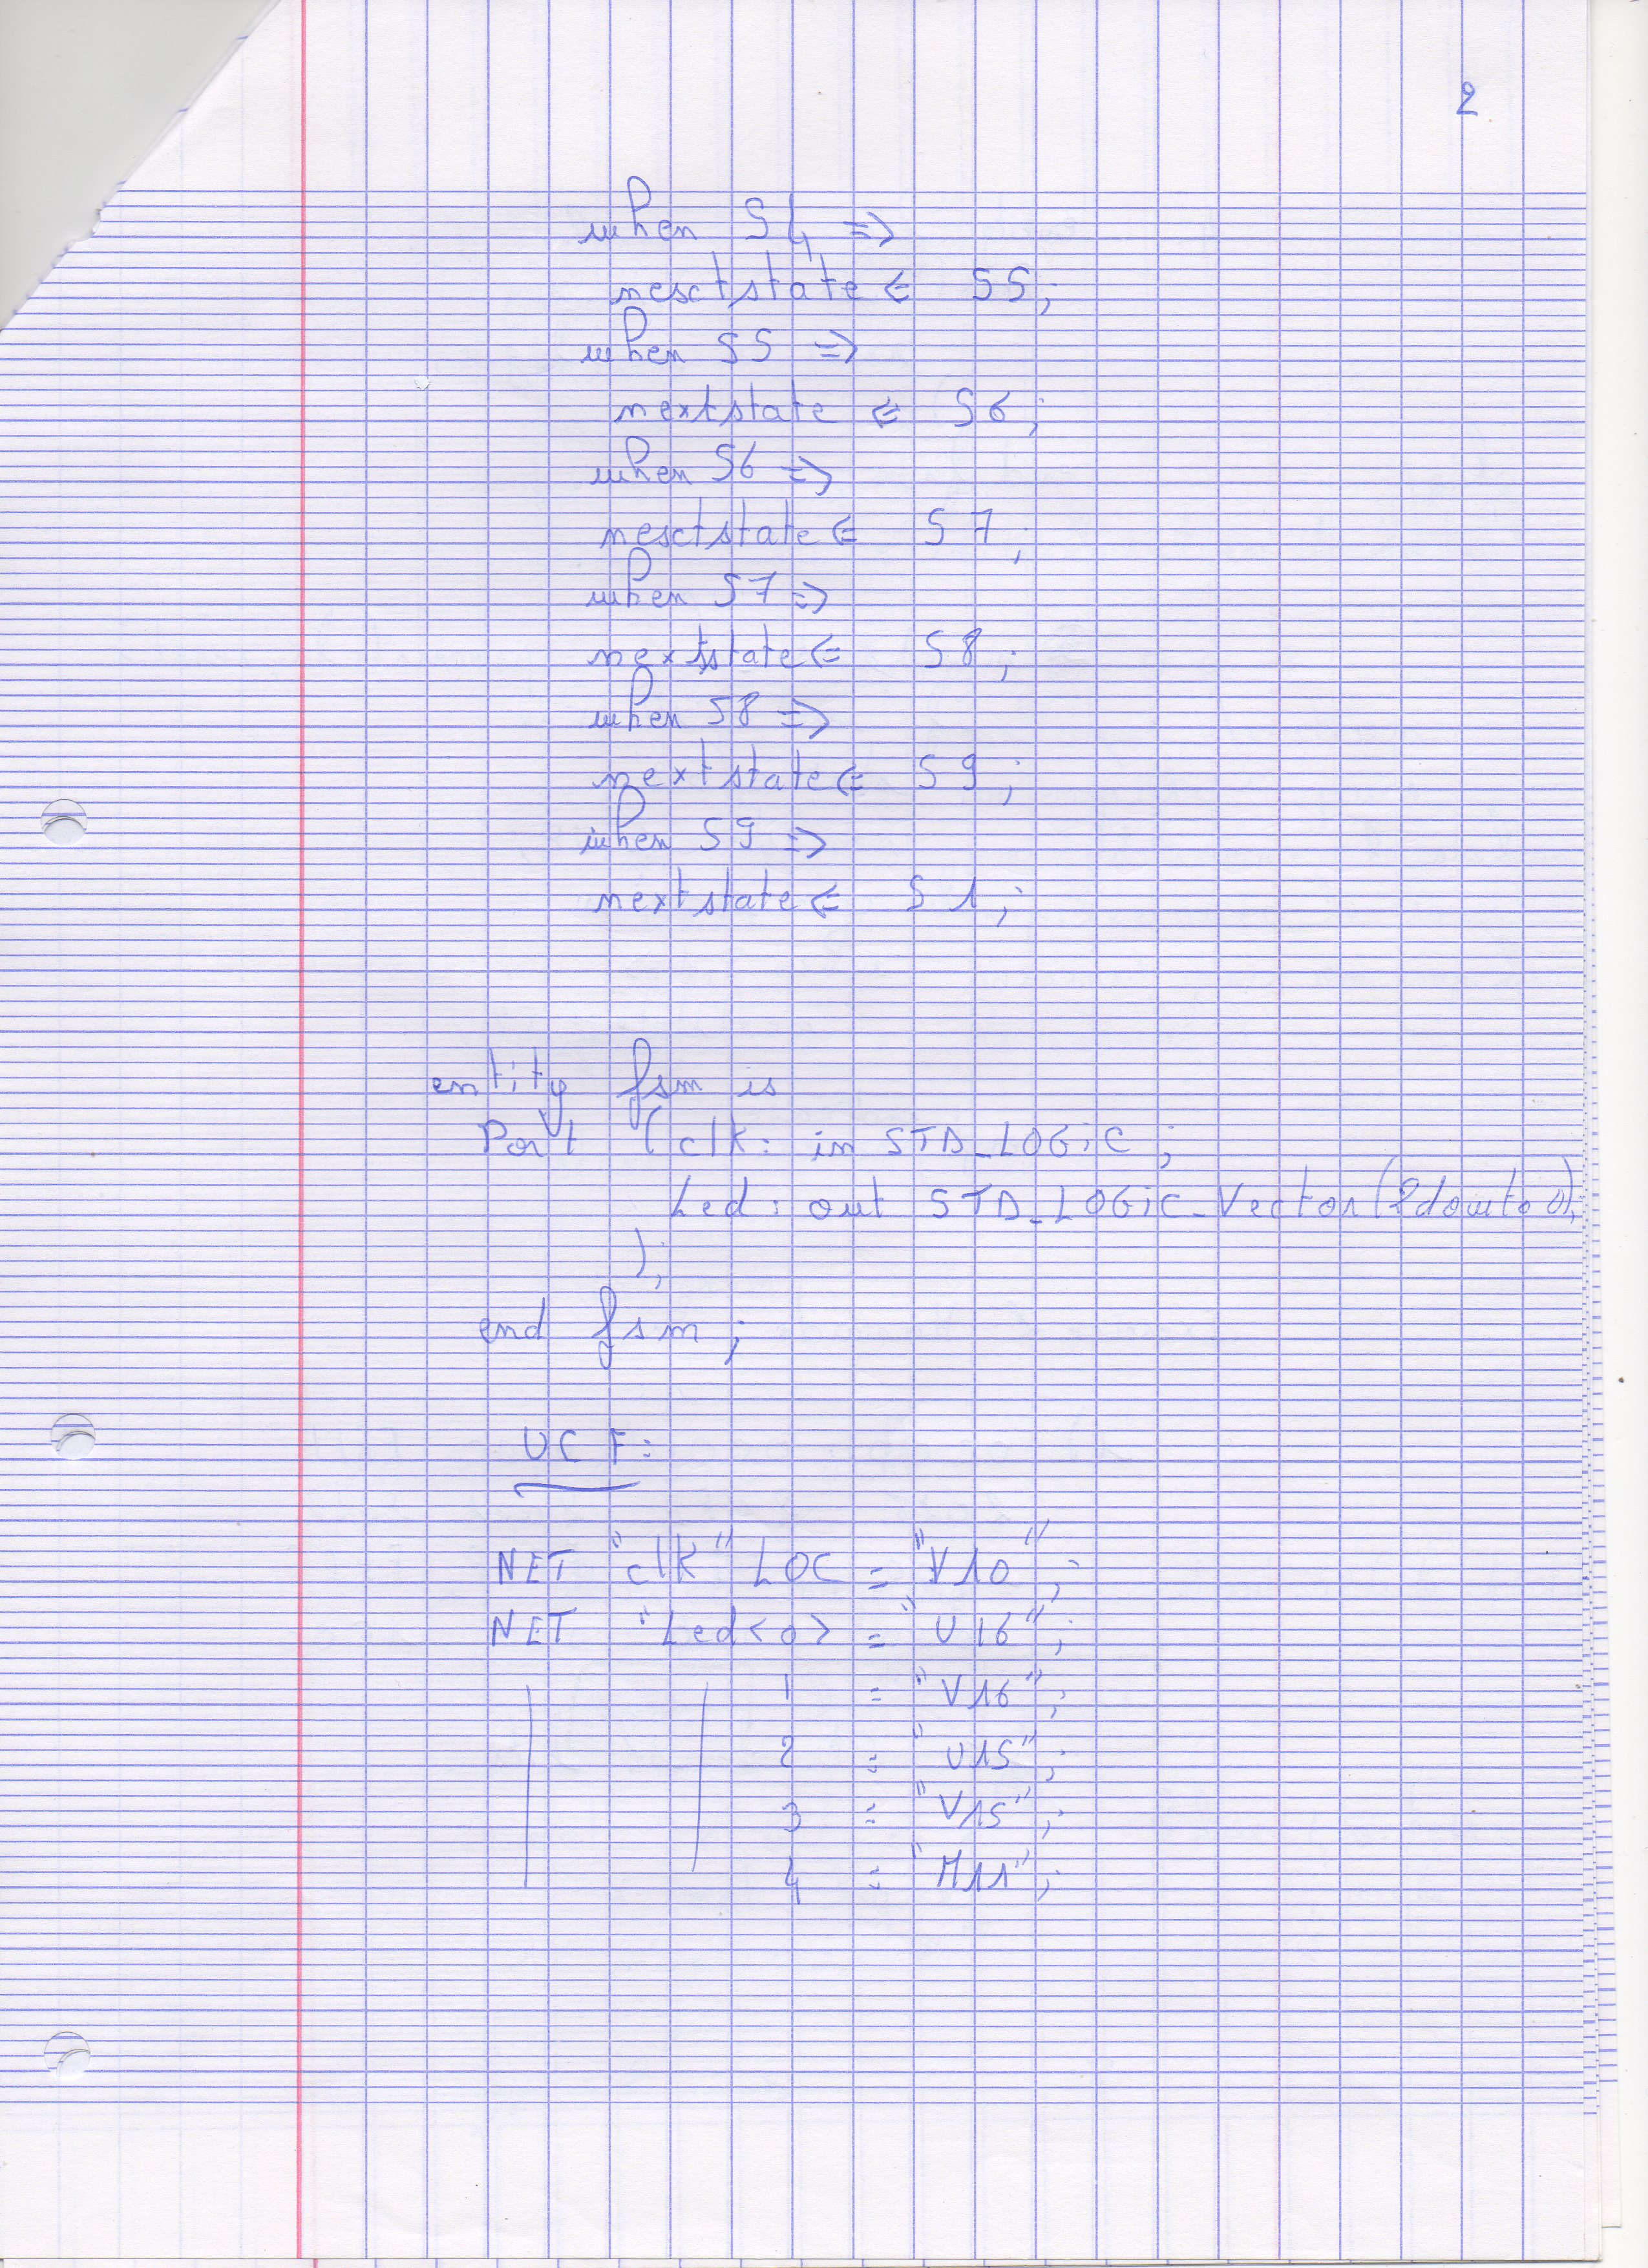 2
when S4 =>
nextstate <= S5;
when S5 =>
nextstate <= S6;
when S6 =>
nextstate <= S7;
when S7 =>
nextstate <= S8;
when S8 =>
nextstate <= S9;
when S9 =>
nextstate <= S1;
entity fsm is
Port (clk: in STD_LOGiC;
Led: out STD_LOGiC_Vector(2downto0);
);
end fsm;
UCF:
NET "clk" LOC = "V10";
NET "Led<0> = "U16";
1 = "V16";
2 = "U15";
3 = "V15";
4 = "M11";